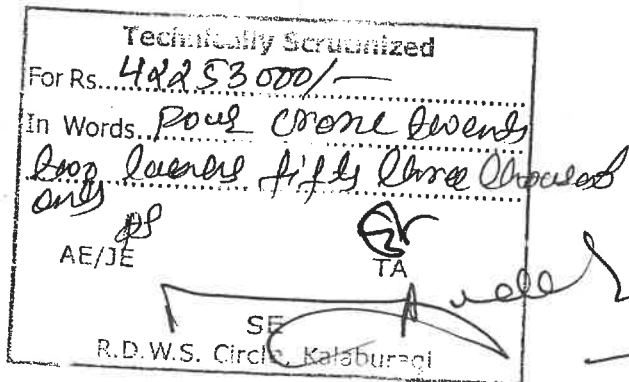 Technically Scrutinized
For Rs. 42253000/-
In Words. Four crore twenty
two lacks fifty three thousand
only
AE/JE TA
SE
R.D.W.S. Circle, Kalaburagi